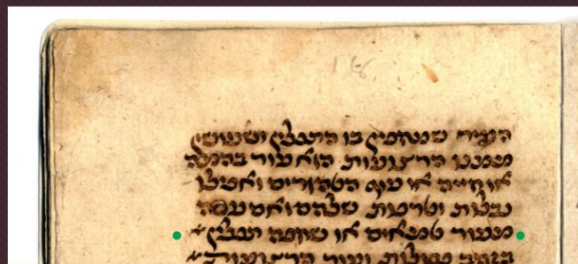 העור שמחפין בו התפלין ושעושין
ממנו הרצועות הוא עור בהמה
או חיה או עוף הטהורים ואפלו
נבלות וטרפות שלהם ואם עשה
מעור טמאים או שחפה תפלין
בזהב פסולות ועור הרצועות